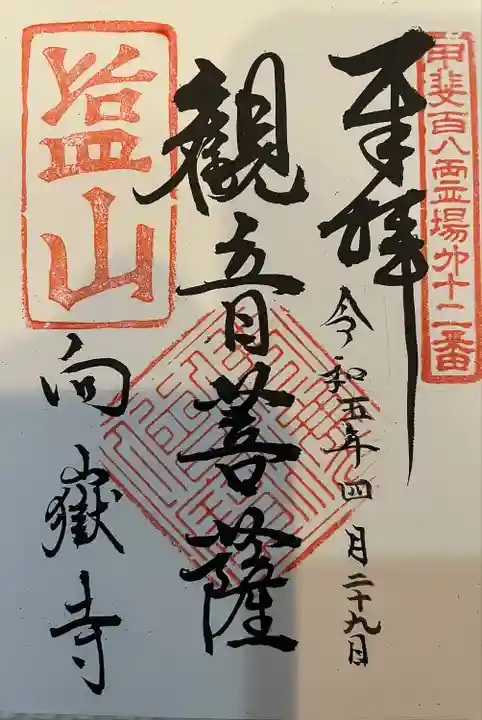 甲斐百八霊場第十二番
奉拝
令和五年四月二十九日
觀音菩薩
塩山
向嶽寺